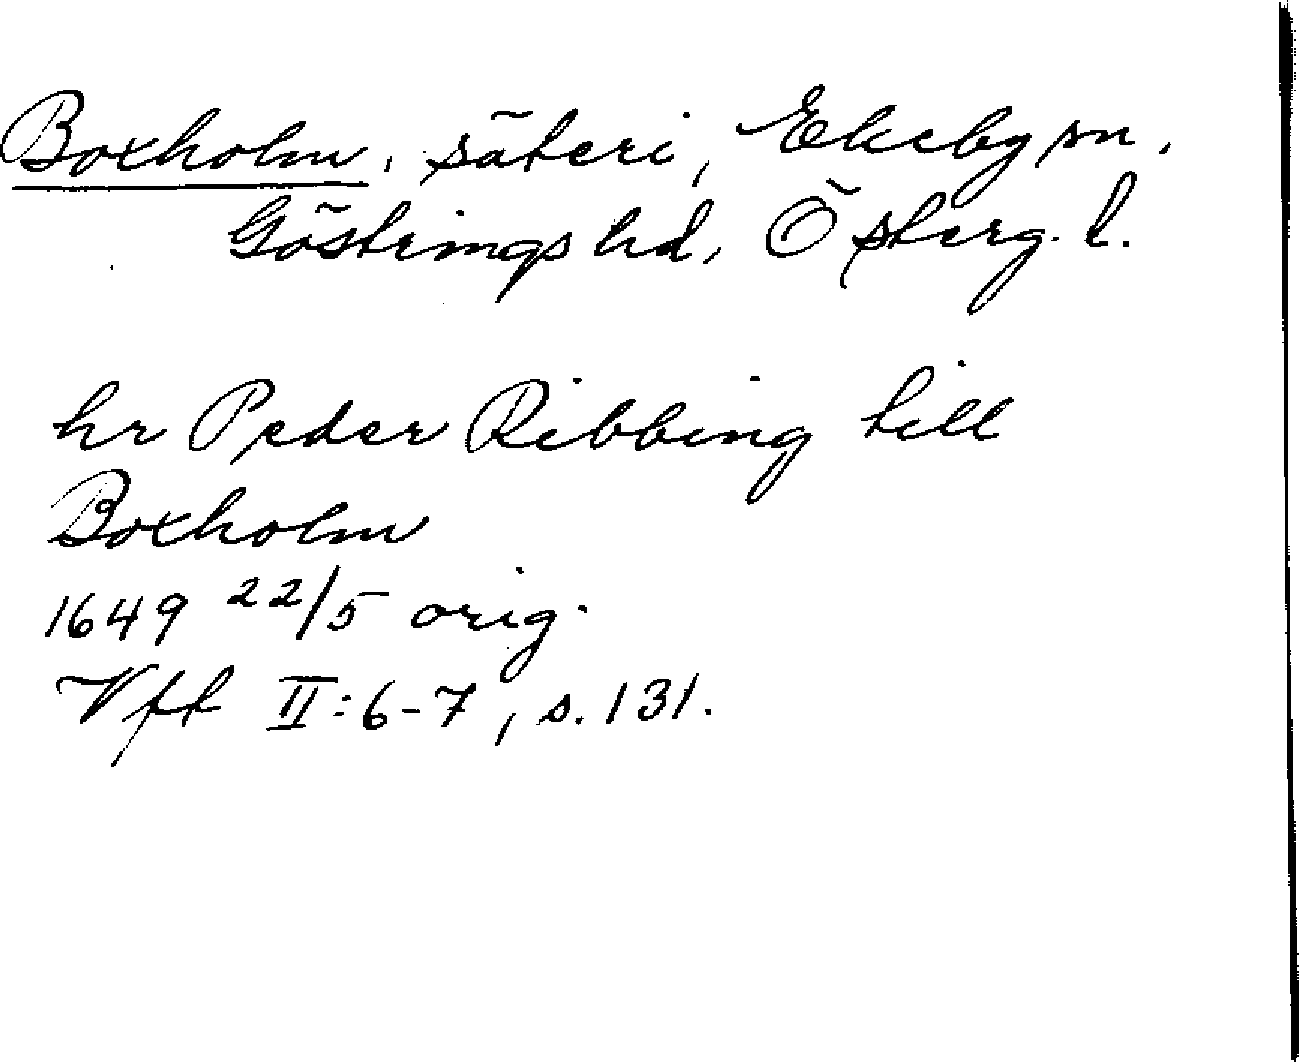 Boxholm, säteri, Ekeby sn,
Göstrings hd, Österg. l.
hr Peder Ribbing till
Boxholm
1649 22/5 orig.
Vft II:6-7, s. 131.